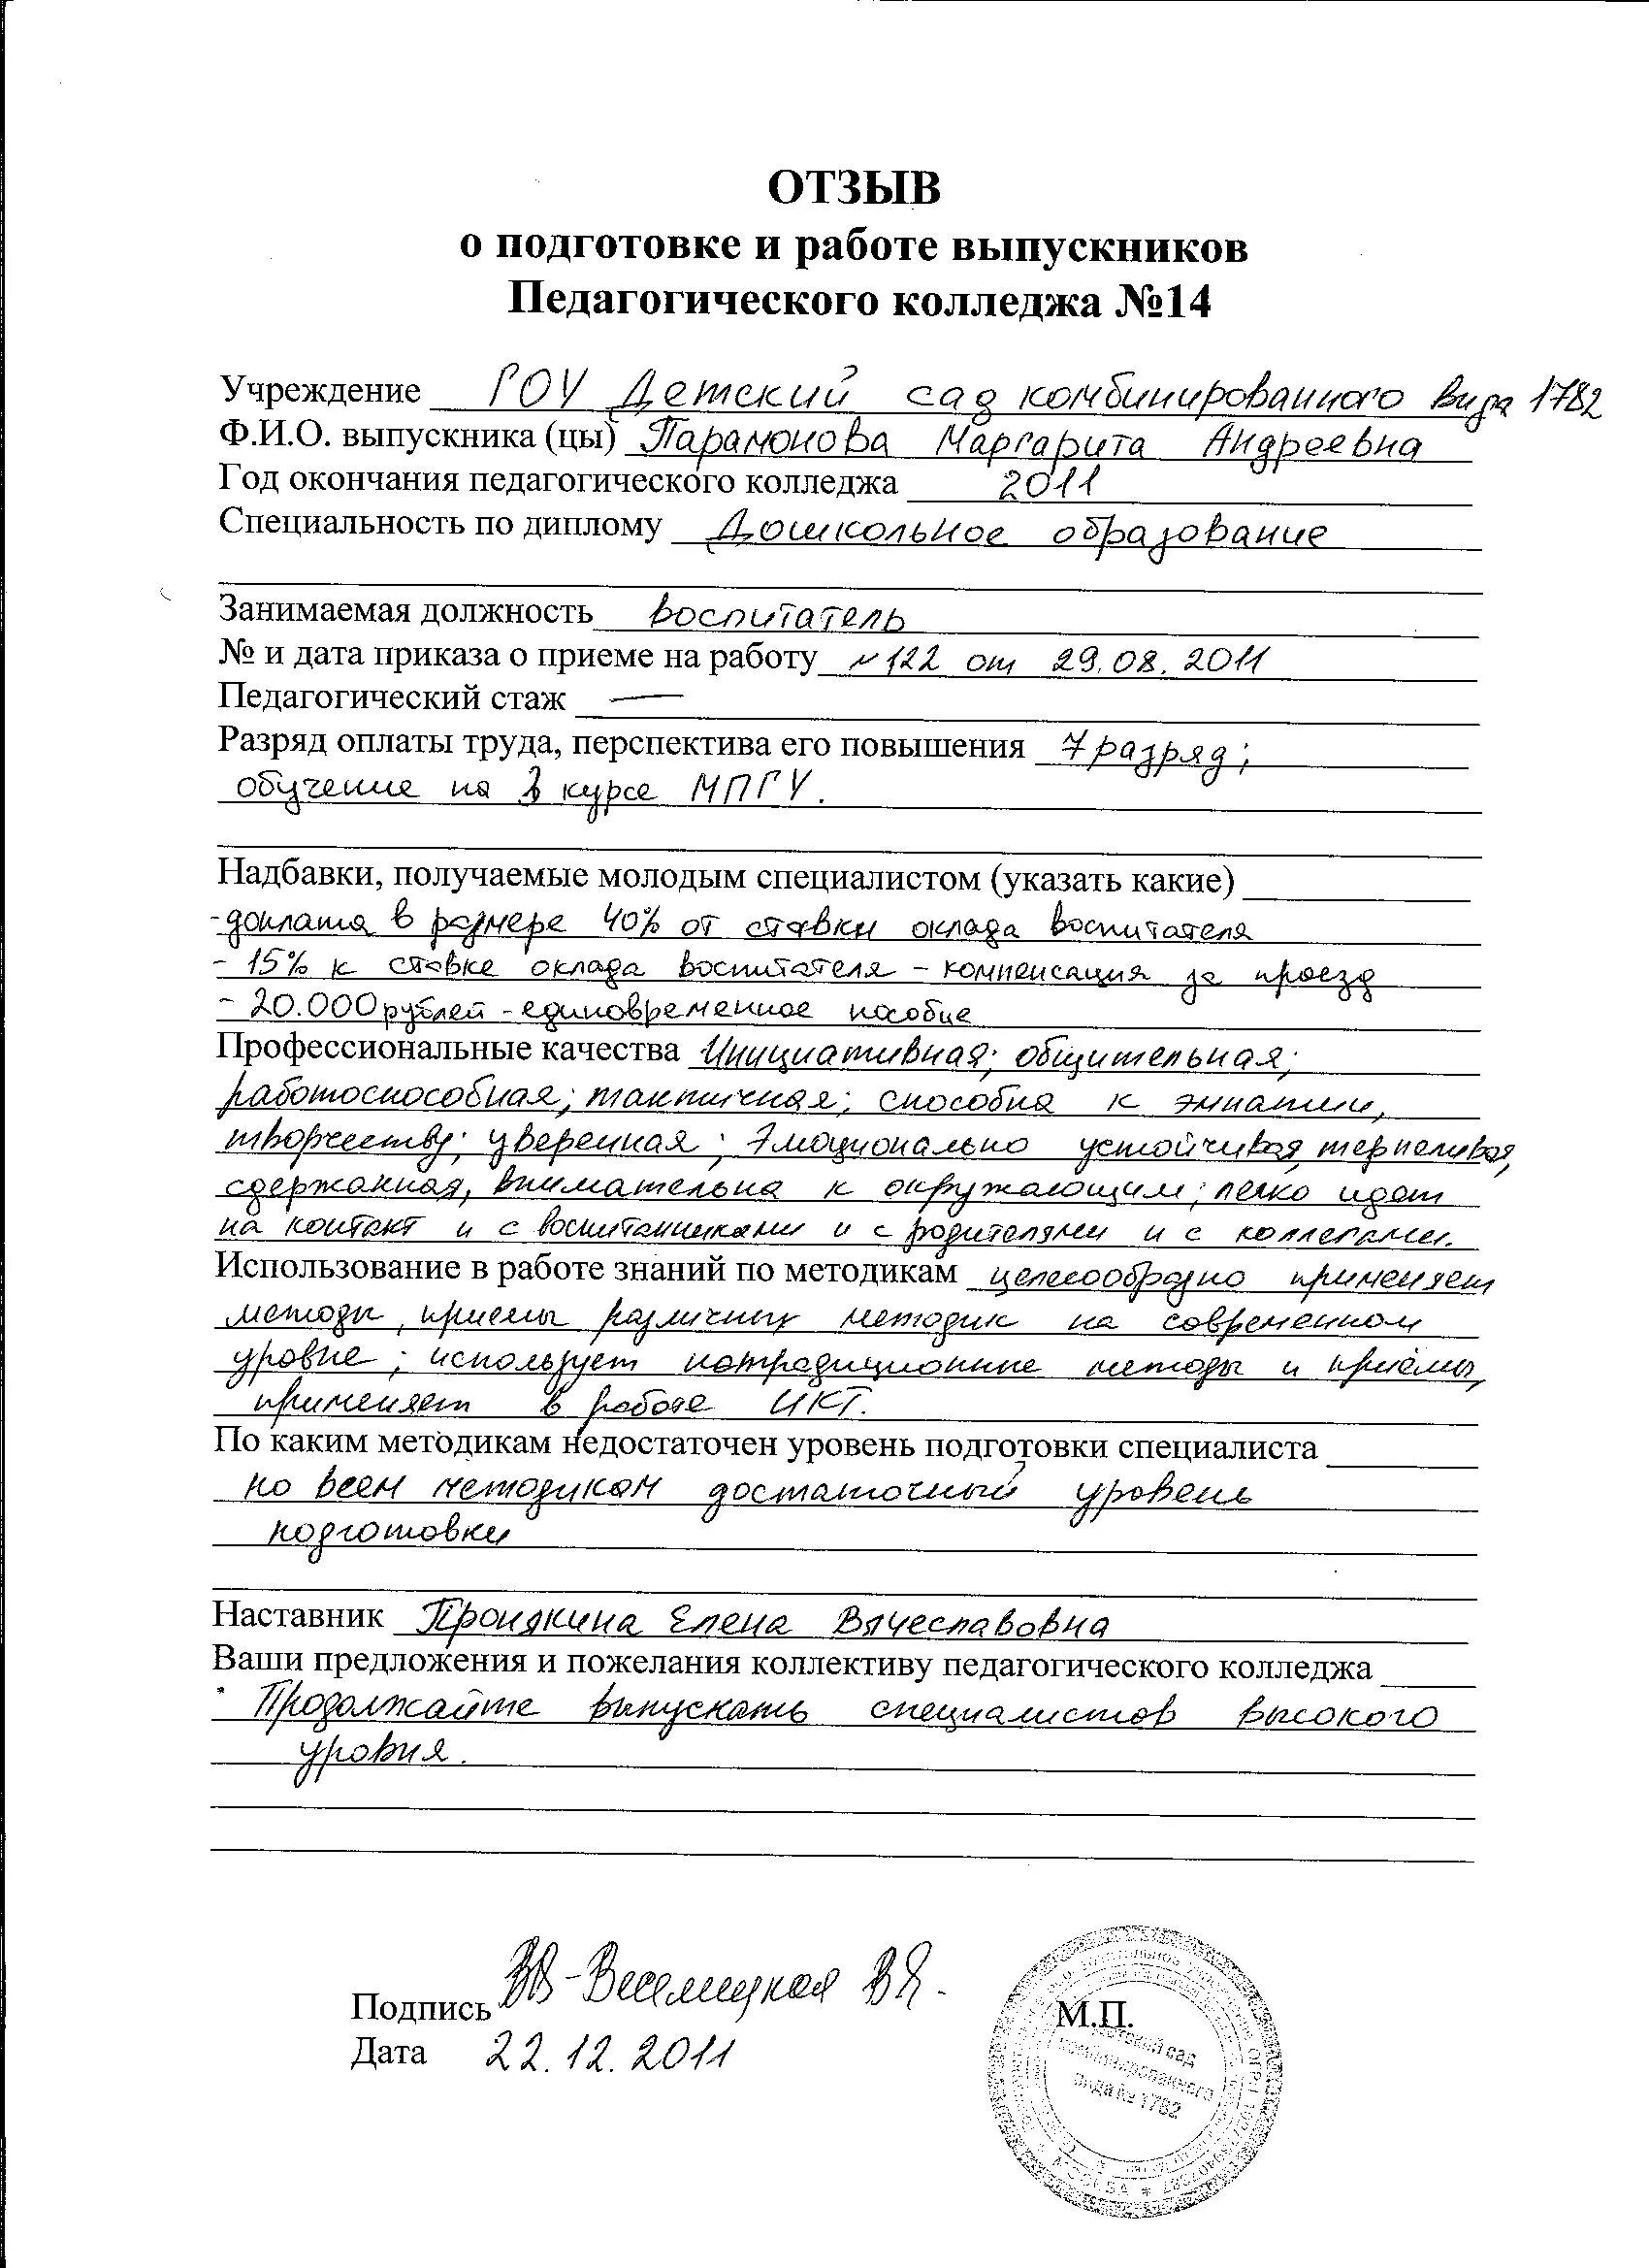 ОТЗЫВ
о подготовке и работе выпускников
Педагогического колледжа №14
Учреждение ГОУ Детский сад комбинированного вида 1782
Ф.И.О. выпускника (цы) Парамонова Маргарита Андреевна
Год окончания педагогического колледжа 2011
Специальность по диплому Дошкольное образование
Занимаемая должность воспитатель
№ и дата приказа о приеме на работу №122 от 29.08.2011
Педагогический стаж —
Разряд оплаты труда, перспектива его повышения 7 разряд;
обучение на курсе МПГУ.
Надбавки, получаемые молодым специалистом (указать какие)
- доплата в размере 40% от ставки оклада воспитателя
- 15% к ставке оклада воспитателя - компенсация за проезд
- 20.000 рублей - единовременное пособие
Профессиональные качества Инициативная; общительная;
работоспособная; тактичная; способна к эмпатии,
творчеству; уверенная; эмоционально устойчивая, терпеливая,
сдержанная, внимательна к окружающим; легко идет
на контакт и с воспитанниками и с родителями и с коллегами.
Использование в работе знаний по методикам целесообразно применяет
методы, приемы различных методик на современном
уровне; использует нетрадиционные методы и приёмы,
применяет в работе ИКТ.
По каким методикам недостаточен уровень подготовки специалиста
по всем методикам достаточный уровень
подготовки
Наставник Пронякина Елена Вячеславовна
Ваши предложения и пожелания коллективу педагогического колледжа
Продолжайте выпускать специалистов высокого
уровня.
Подпись Веселицкая В.Я.
М.П.
Дата 22.12.2011
детский сад
комбинированного
вида № 1782